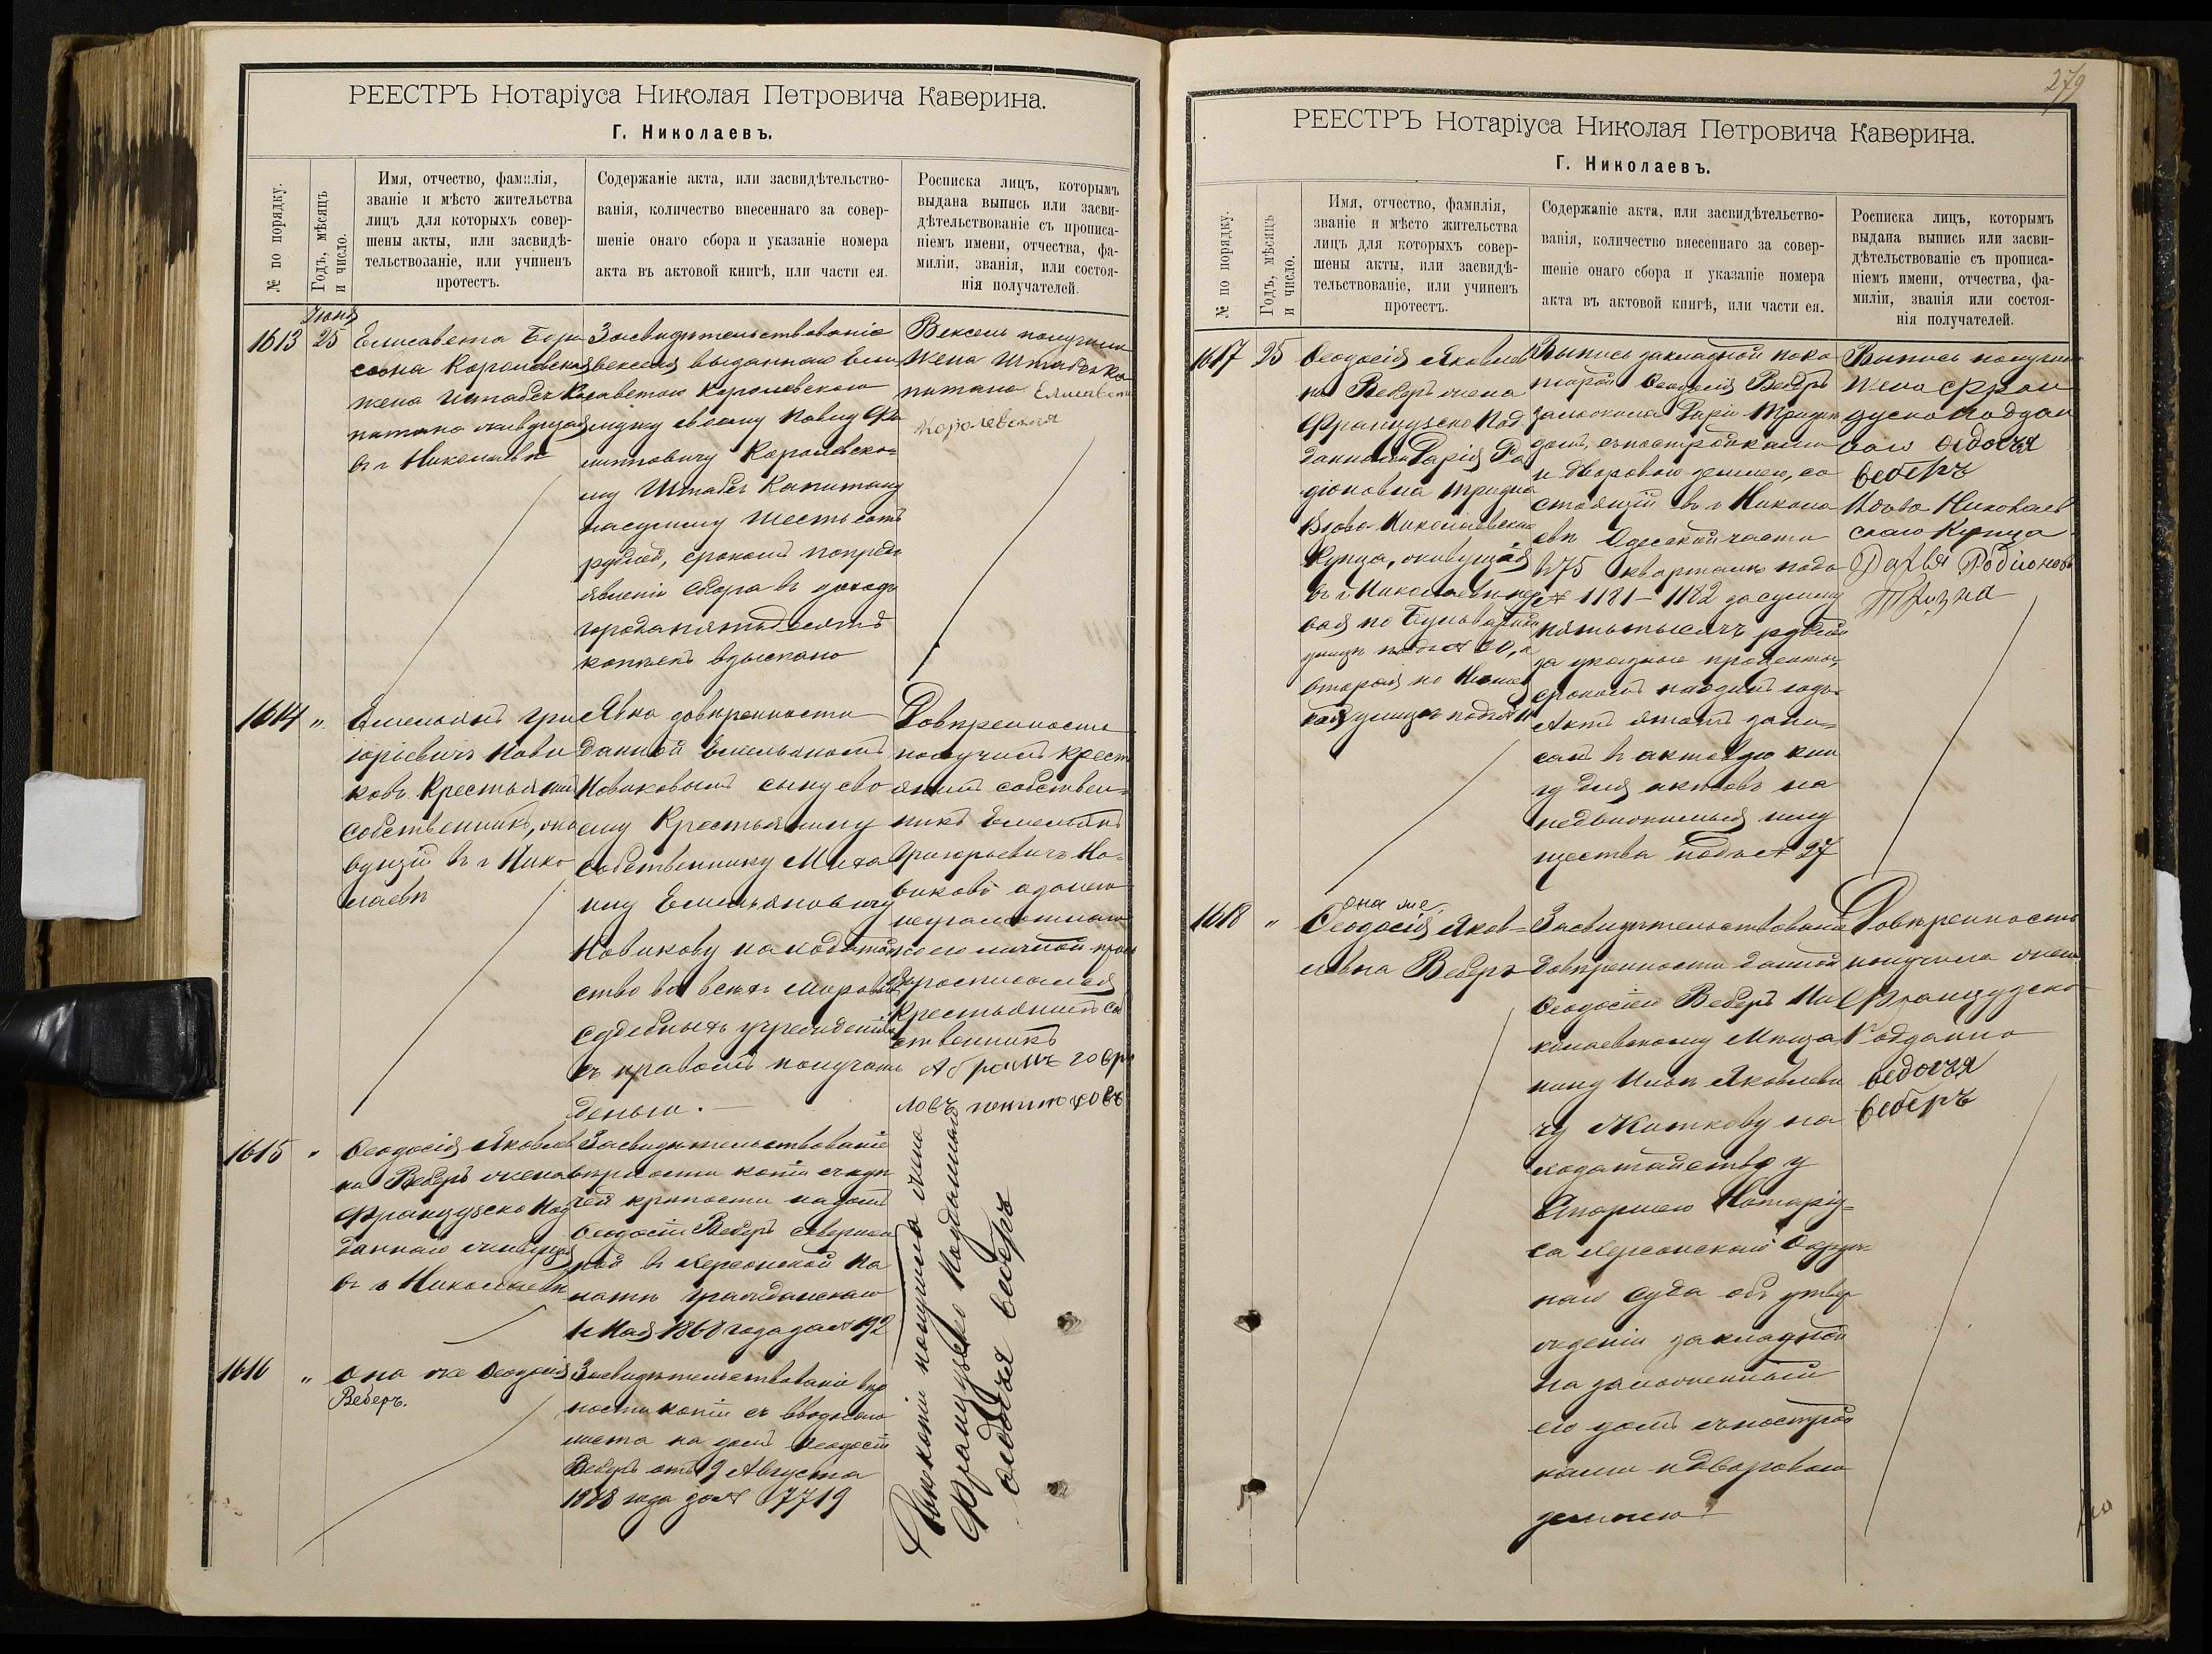 РЕЕСТРЪ Нотаріуса Николая Петровича Каверина.
Г. Николаевъ.
№ по порядку.
Годъ, мѣсяцъ
и число.
Имя, отчество, фамилія,
званіе и мѣсто жительства
лицъ для которыхъ совер-
шены акты, или засвидѣ-
тельствованіе, или учиненъ
протестъ.
Содержаніе акта, или засвидѣтельство-
ванія, количество внесеннаго за совер-
шеніе онаго сбора и указаніе номера
акта въ актовой книгѣ, или части ея.
Росписка лицъ, которымъ
выдана выпись или засви-
дѣтельствованіе съ прописа-
ніемъ имени, отчества, фа-
миліи, званія, или состоя-
нія получателей.
1613
Іюня
25
Елисавета Бори
совна Королевская
жена Штабсъ Ка
питана живущая
въ г Николаевѣ
Засвидѣтельствованіе
векселя выданнаго Ели
саветою Королевскою
мужу своему Павлу Фи
липповичу Королевско=
му Штабсъ Капитану
насумму шестьсотъ
рублей, срокомъ попредъ
явленіи Сбора въ доходъ
города пятьдесятъ
копѣекъ взыскано
Вексель получила
жена Штабсъ Ка
питана Елисавета
Королевская
1614 "
Емельянъ Гри
горіевичъ Нови
ковъ Крестьянинъ
Собственникъ, жи
вущій въ г Нико
лаевѣ
Явка довѣренности
данной Емельяномъ
Новиковымъ сыну сво
ему Крестьянину
собственнику Миха
илу Емельяновичу
Новикову на ходатай
ство во всѣхъ мировыхъ
судебныхъ учрежденіяхъ
съ правомъ получать
деньги.—
Довѣренность
получилъ крест
янинъ собствен=
никъ Емельянъ
Григорьевичъ Но=
виковъ а за него
неграмотнаго
по его личной прось
бѣ росписался
Крестьянинъ Соб
ственникъ
Абрамъ Гаври
ловъ
1615 "
Феодосія Яковлев
на Веберъ жена
Французско Под
даннаго живущая
въ г Николаевѣ
Засвидѣтельствованіе
вѣрности копіи съ куп
чей крѣпости на домъ
Феодосіи Веберъ совершен
ной въ Херсонской Па
латѣ Гражданскаго
1 Мая 1868 года за № 192
1616 "
Она же Феодосія
Веберъ.
Засвидѣтельствованіе вѣр
ности копіи съ вводнаго
листа на домъ Феодосіи
Веберъ отъ 9 Августа
1868 года за № 7719
Двѣ копіи получила жена
Французско Подданнаго
Федосія Веберъ
279
РЕЕСТРЪ Нотаріуса Николая Петровича Каверина.
Г. Николаевъ.
№ по порядку.
Годъ, мѣсяцъ
и число.
Имя, отчество, фамилія,
званіе и мѣсто жительства
лицъ для которыхъ совер-
шены акты, или засвидѣ-
тельствованіе, или учиненъ
протестъ.
Содержаніе акта, или засвидѣтельство-
ванія, количество внесеннаго за совер-
шеніе онаго сбора и указаніе номера
акта въ актовой книгѣ, или части ея.
Росписка лицъ, которымъ
выдана выпись или засви-
дѣтельствованіе съ прописа-
ніемъ имени, отчества, фа-
миліи, званія или состоя-
нія получателей.
1617 25
Феодосія Яковлев
на Веберъ жена
Французско Под
даннаго и Дарія Ро
діоновна
Вдова Николаевскаго
Купца, живущія
въ г Николаевѣ пер
вая по Бульварной
улицѣ подъ № 20, а
вторая по
кой улицѣ подъ №
Выпись закладной по ко
торой Феодосія Веберъ
заложила Даріи
домъ, съ постройками
и дворовою землею, со
стоящій въ г Никола
евѣ Одесской части
въ 75 кварталѣ подъ
№ 1181–1182 за сумму
пять тысячъ рублей
за указные проценты,
срокомъ на одинъ годъ.
Актъ этотъ запи=
санъ въ актовую кни
гу для актовъ на
недвижимыя иму
щества подъ № 27
Выпись получили
жена Фран
цуско поддан
наго Федосія
Веберъ
Вдова Николаев
скаго Купца
Дарья Родіонова
1618 "
она же
Феодосія Яков=
левна Веберъ
Засвидѣтельствованіе
довѣренности данной
Феодосіею Веберъ Ни
колаевскому Мѣща
нину Ильѣ Яковлеви
чу Житкову на
ходатайство у
Старшаго Нотаріу=
са Херсонскаго Окруж
наго Суда объ утвер
жденіи закладной
на заложенный
ею домъ съ построй
ками и дворовою
землею
Довѣренность
получила жена
Французско
Подданно
Федосія
Веберъ